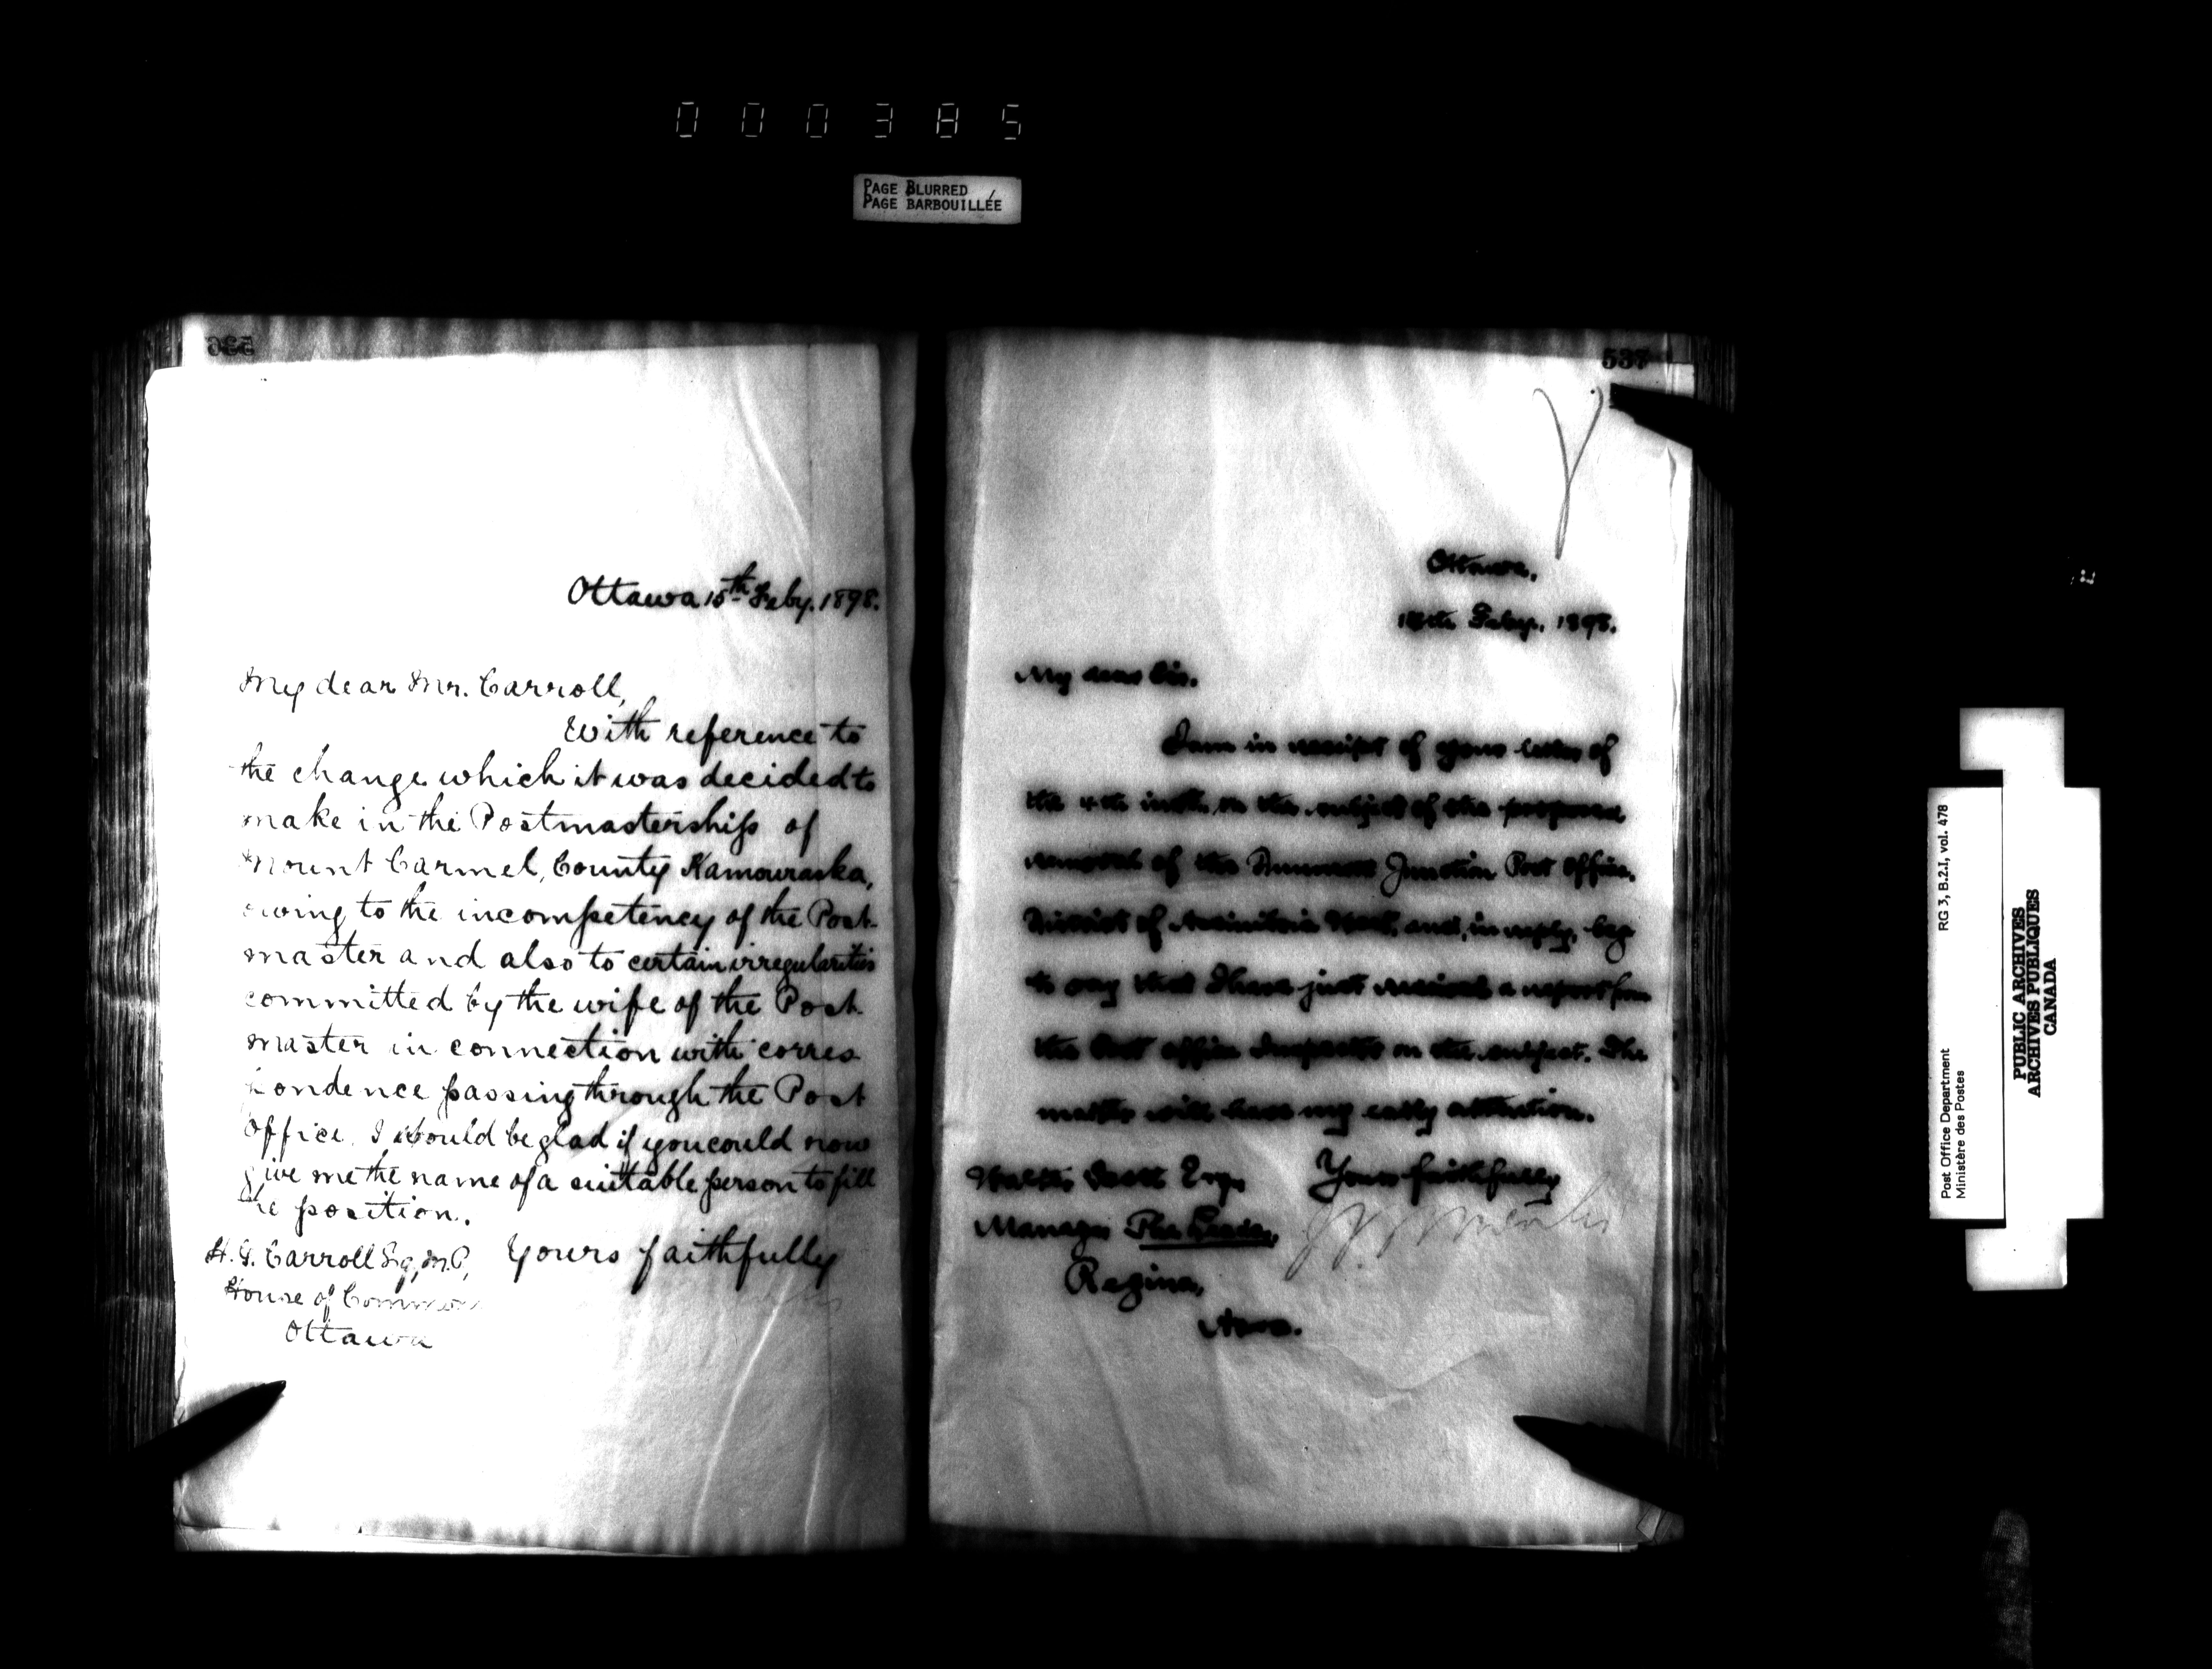 000385
PAGE BLURRED
PAGE BARBOUILLÉE
536
Ottawa 15th Feby. 1898.
My dear Mr. Carroll,
With reference to
the change which it was decided to
make in the Postmastership of
Mount Carmel, County Kamouraska,
owing to the incompetency of the Post-
master and also to certain irregularities
committed by the wife of the Post
master in connection with corres
pondence passing through the Post
Office. I should be glad if you could now
give me the name of a suitable person to fill
the position.
Yours faithfully
H. G. Carroll Esq, M.P,
House of Commons
Ottawa
537
Ottawa,
Feby. 1898.
My dear Sir.
I am in receipt of your letter of
the 4th inst. on the subject of the proposed
removal of the Junction Post Office,
District of Assiniboia West, and, in reply, beg
to say that I have just received a report from
the Post Office Inspector on the subject. The
matter will have my early attention.
Yours faithfully
Walter Scott Esq.
Manager The Leader,
Regina,
Assa.
RG 3, B.2.I, vol. 478
Post Office Department
Ministère des Postes
PUBLIC ARCHIVES
ARCHIVES PUBLIQUES
CANADA